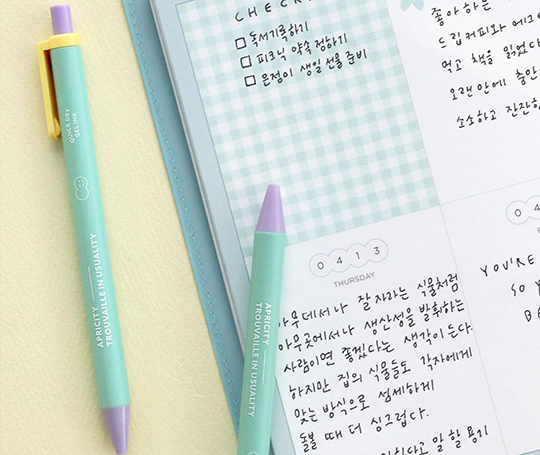 CHECK
독서기록하기
피크닉 약속 정하기
은정이 생일 선물 준비
좋아하는
드립커피와 에그
먹고 책을 읽었다
오랜만에
소소하고 잔잔한
0413
THURSDAY
아무데서나 잘 자라는 식물처럼
아무곳에서나 생산성을 발휘하는
사람이면 좋겠다는 생각이 든다.
하지만 집의 식물들도 각자에게
맞는 방식으로 섬세하게
돌볼 때 더 싱그럽다.
말할 용기
04
YOU'RE
SO
QUICK DRY
GEL INK
APRICITY
TROUVAILLE IN USUALITY
APRICITY
TROUVAILLE IN USUALITY